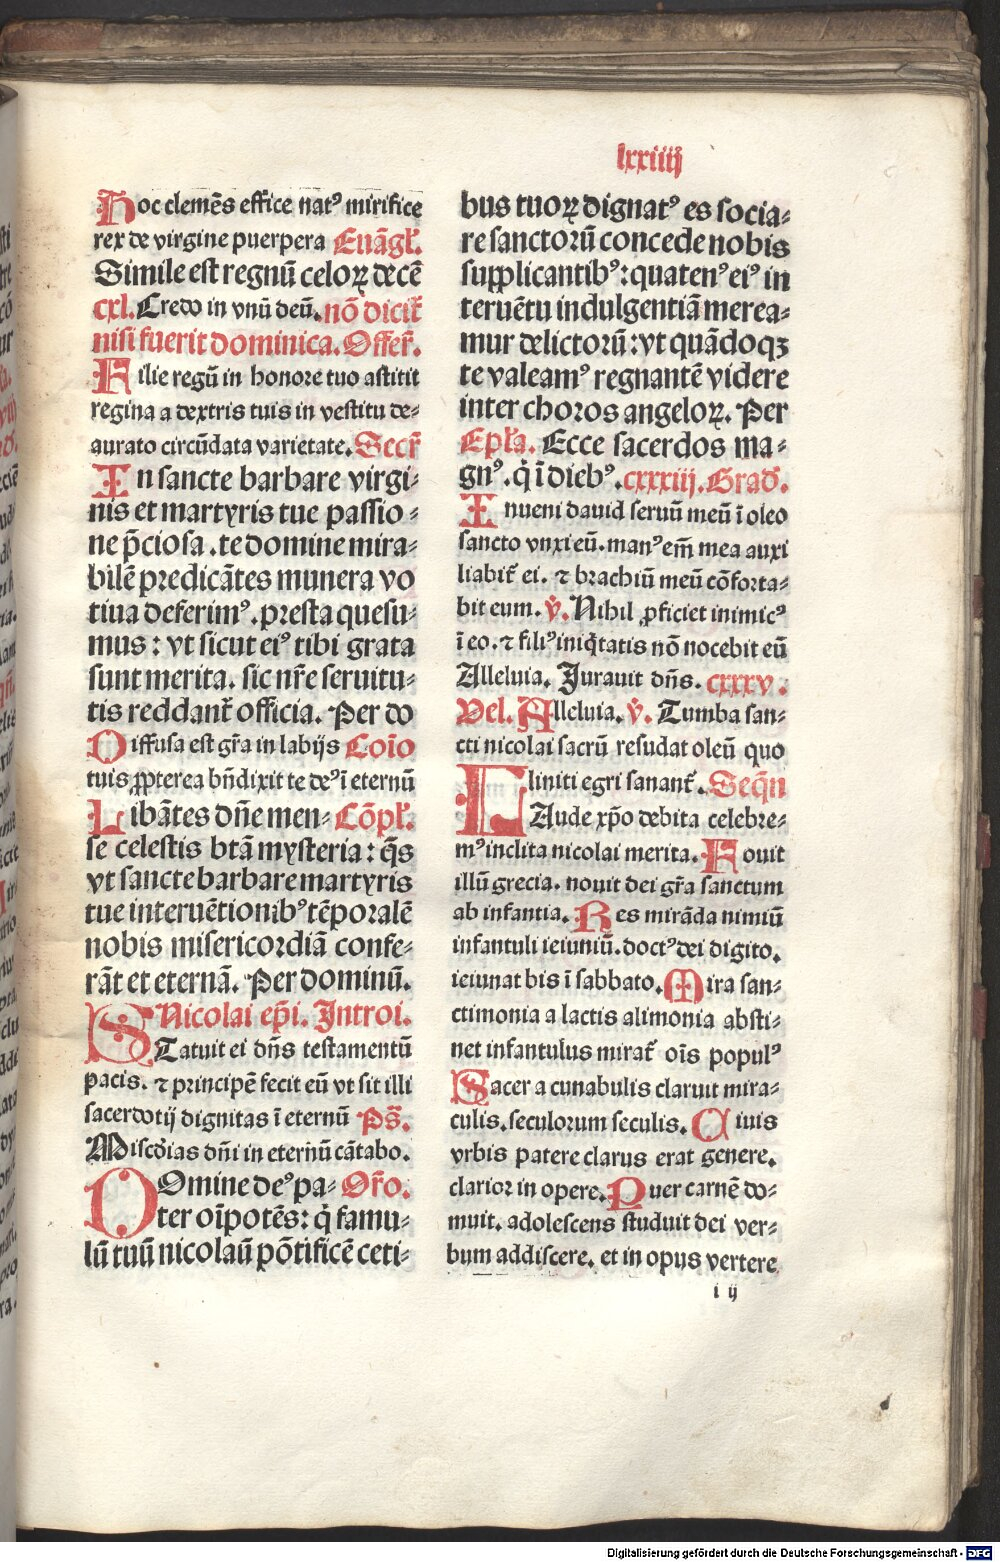 lxxiiij
Hoc clemẽs effice natꝰ mirifice
rex de virgine puerpera Euãgl̃.
Simile est regnũ celoꝝ decẽ
cxl. Credo in vnũ deũ. nõ dicit̃
nisi fuerit dominica. Offer̃.
Filie regũ in honore tuo astitit
regina a dextris tuis in vestitu de⸗
aurato circũdata varietate. Secr̃
In sancte barbare virgi⸗
nis et martyris tue passio⸗
ne p̃ciosa. te domine mira⸗
bilẽ predicãtes munera vo
tiua deferimꝰ. presta quesu⸗
mus: vt sicut eiꝰ tibi grata
sunt merita. sic nr̃e seruitu⸗
tis reddant̃ officia. Per do
Diffusa est gr̃a in labijs Cõio
tuis ꝓpterea bñdixit te deꝰ ĩ eternũ
Libãtes dñe men⸗ Cõpl̃.
se celestis btã mysteria: q̃s
vt sancte barbare martyris
tue interuẽtionibꝰ tẽporalẽ
nobis misericordiã confe⸗
rãt et eternã. Per dominũ.
Nicolai ep̃i. Introi.
STatuit ei dñs testamentũ
pacis. ⁊ principẽ fecit eũ vt sit illi
sacerdotij dignitas ĩ eternũ Ps̃.
Misc̃dias dñi in eternũ cãtabo.
DOmine deꝰ pa⸗ Or̃o.
ter oĩpotẽs: q̃ famu⸗
lũ tuũ nicolaũ põtificẽ ceti⸗
bus tuoꝝ dignatꝰ es socia⸗
re sanctorũ concede nobis
supplicantibꝰ: quatenꝰ eiꝰ in
teruẽtu indulgentiã merea⸗
mur delictorũ: vt quãdoqꝫ
te valeamꝰ regnantẽ videre
inter choros angeloꝝ. Per
Epl̃a. Ecce sacerdos ma⸗
gnꝰ. q̃ ĩ diebꝰ. cxxxiij. Grad̃.
Inueni dauid seruũ meũ ĩ oleo
sancto vnxi eũ. manꝰ em̃ mea auxi
liabit̃ ei. ⁊ brachiũ meũ cõforta⸗
bit eum. v̓. Nihil ꝓficiet inimicꝰ
ĩ eo. ⁊ filiꝰ iniq̃tatis nõ nocebit eũ
Alleluia. Jurauit dñs. cxxxv.
Vel. Alleluia. v̓. Tumba san⸗
cti nicolai sacrũ resudat oleũ quo
liniti egri sanant̃. Seq̃n
LAude xp̃o debita celebre⸗
mꝰ inclita nicolai merita. Fouit
illũ grecia. nouit dei gr̃a sanctum
ab infantia. Res mirãda nimiũ
infantuli ieiuniũ. doctꝰ dei digito.
ieiunat bis ĩ sabbato. Mira san⸗
ctimonia a lactis alimonia absti⸗
net infantulus mirat̃ oĩs populꝰ
Sacer a cunabulis claruit mira⸗
culis. seculorum seculis. Ciuis
vrbis patere clarus erat genere.
clarior in opere. Puer carnẽ do⸗
muit. adolescens studuit dei ver⸗
bum addiscere. et in opus vertere
i ij
Digitalisierung gefördert durch die Deutsche Forschungsgemeinschaft - DFG